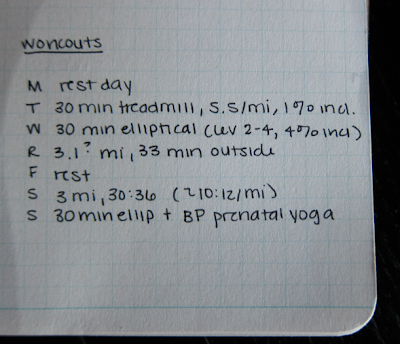 workouts
M rest day
T 30 min treadmill, 5.5/mi, 1% incl.
W 30 min elliptical (lev 2-4, 4% incl)
R 3.1? mi, 33 min outside
F rest
S 3 mi, 30:36 (~10:12/mi)
S 30 min ellip + BP prenatal yoga